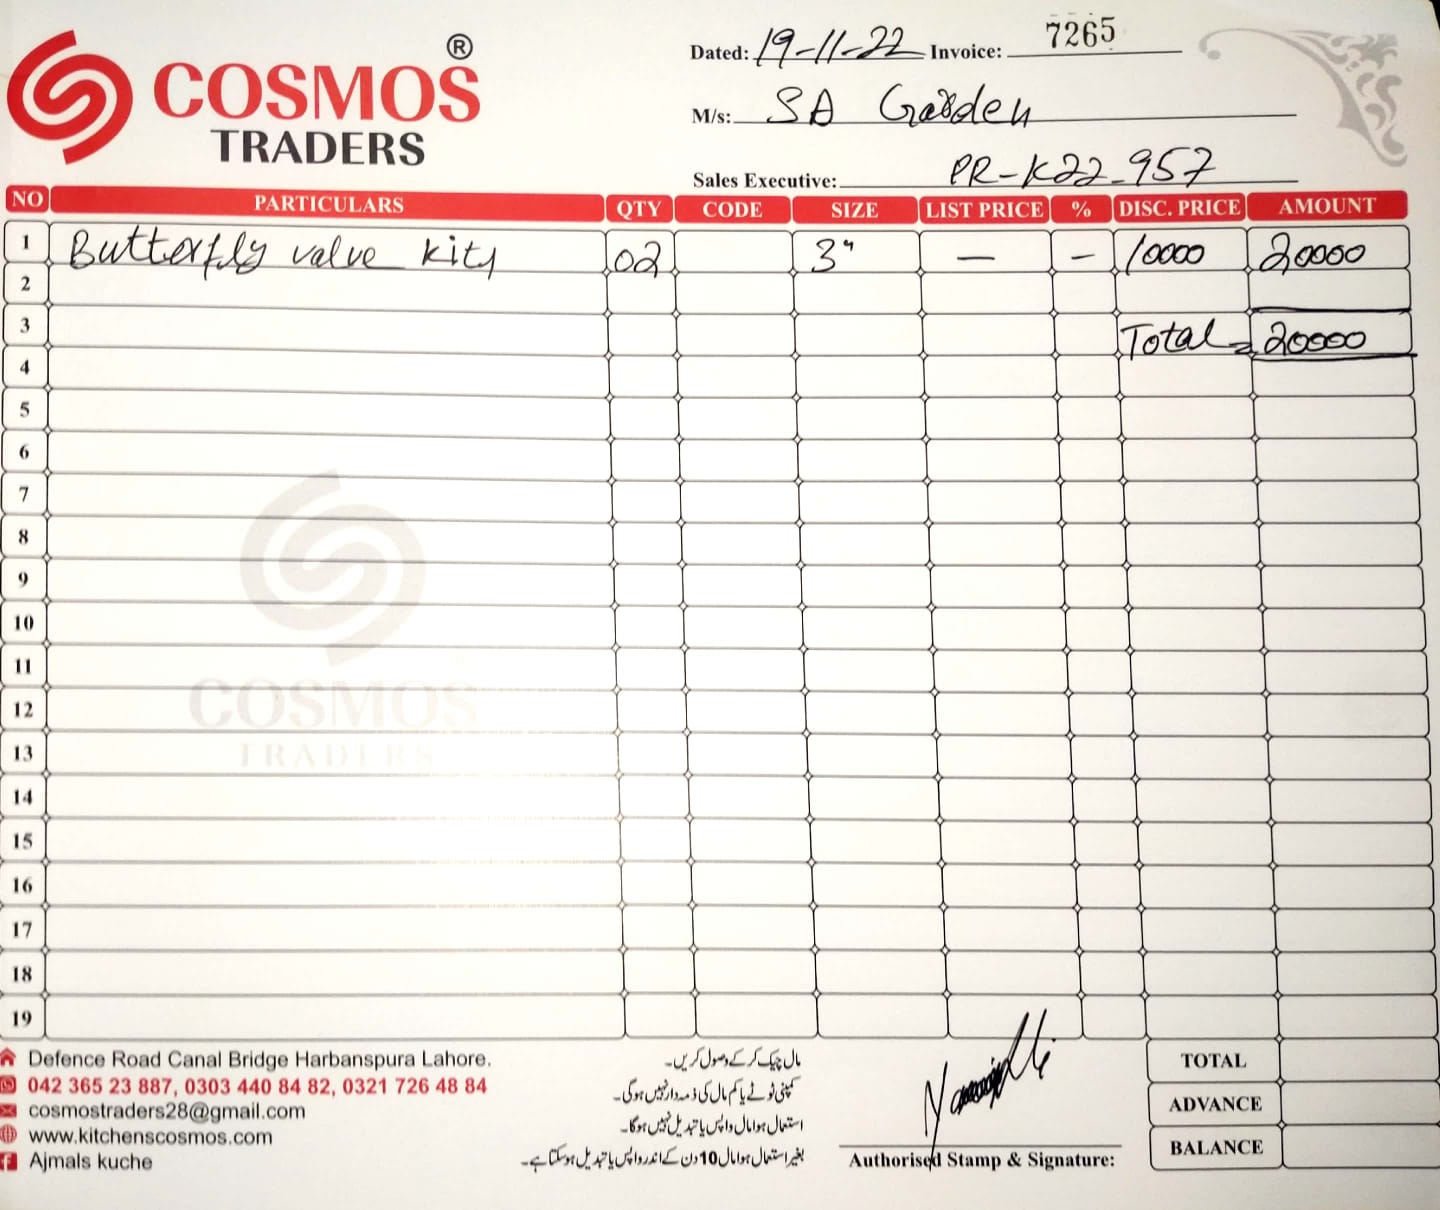 COSMOS ®
TRADERS
Dated: 19-11-22 Invoice: 7265
M/s: SA Garden
Sales Executive: PR-K22-957
NO PARTICULARS QTY CODE SIZE LIST PRICE % DISC. PRICE AMOUNT
1 Butterfly valve kity 02 3" — – 10000 20000
2
3 Total = 20000
4
5
6
7
8
9
10
11
12
13
14
15
16
17
18
19
COSMOS
TRADERS
Defence Road Canal Bridge Harbanspura Lahore.
042 365 23 887, 0303 440 84 82, 0321 726 48 84
cosmostraders28@gmail.com
www.kitchenscosmos.com
Ajmals kuche
مال چیک کر کے وصول کریں۔
کمپنی ٹوٹے یا کم مال کی ذمہ دار نہیں ہوگی۔
استعمال ہوا مال واپس یا تبدیل نہیں ہوگا۔
بغیر استعمال ہوا مال 10 دن کے اندر واپس یا تبدیل ہوسکتا ہے۔
Authorised Stamp & Signature:
TOTAL
ADVANCE
BALANCE